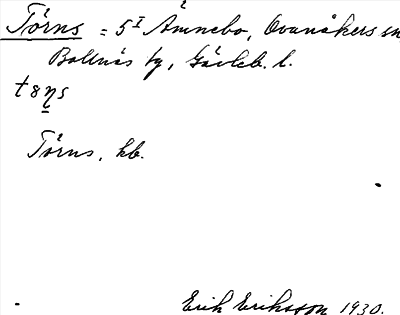 Törns = 5 I Ämnebo, Ovanåkers sn
Bollnäs tg, Gävleb. l.
tɞꞃs
Törns, kb.
Erik Eriksson 1930.